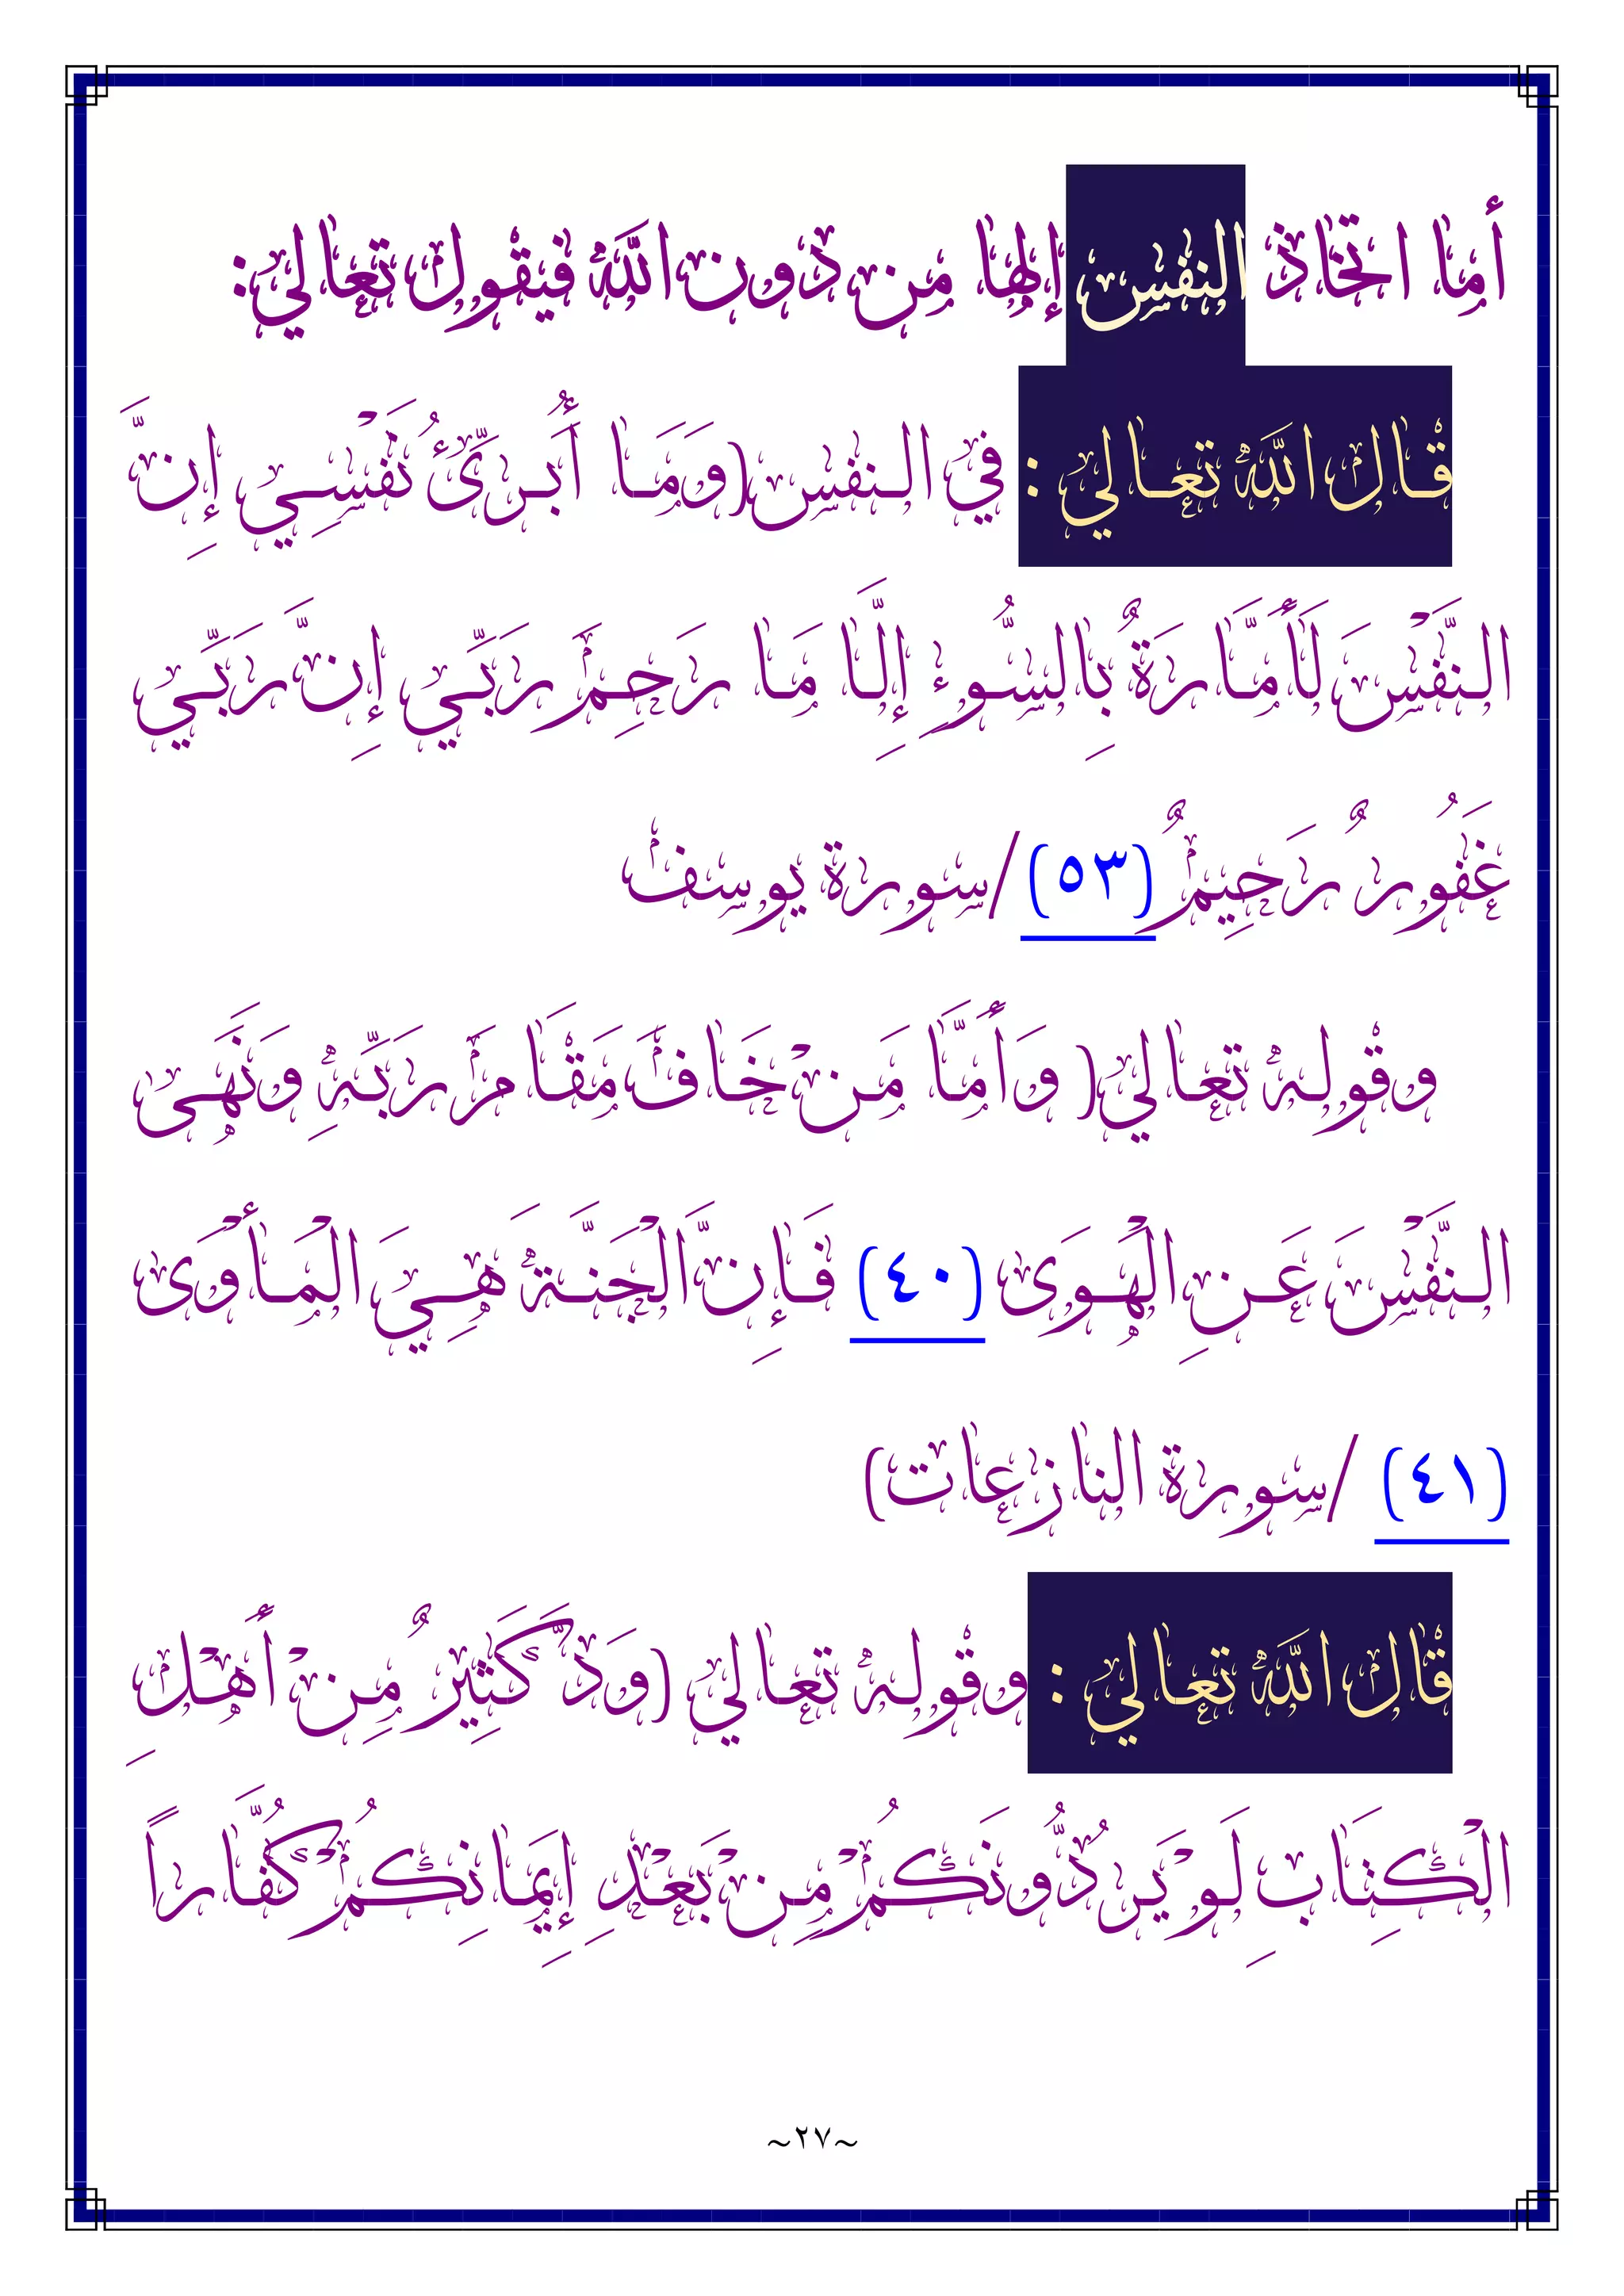 أما اتخاذ النفس إلها من دون الله فيقول تعالي:
قال الله تعالي : في النفس(وَمَا أُبَرِّئُ نَفْسِي إِنَّ
النَّفْسَ لَأَمَّارَةٌ بِالسُّوءِ إِلَّا مَا رَحِمَ رَبِّي إِنَّ رَبِّي
غَفُورٌ رَحِيمٌ (٥٣)/سورة يوسف
وقوله تعالي( وَأَمَّا مَنْ خَافَ مَقَامَ رَبِّهِ وَنَهَى
النَّفْسَ عَنِ الْهَوَى (٤٠) فَإِنَّ الْجَنَّةَ هِيَ الْمَأْوَى
(٤١) /سورة النازعات)
قال الله تعالي : وقوله تعالي (وَدَّ كَثِيرٌ مِنْ أَهْلِ
الْكِتَابِ لَوْ يَرُدُّونَكُمْ مِنْ بَعْدِ إِيمَانِكُمْ كُفَّاراً
~٢٧~